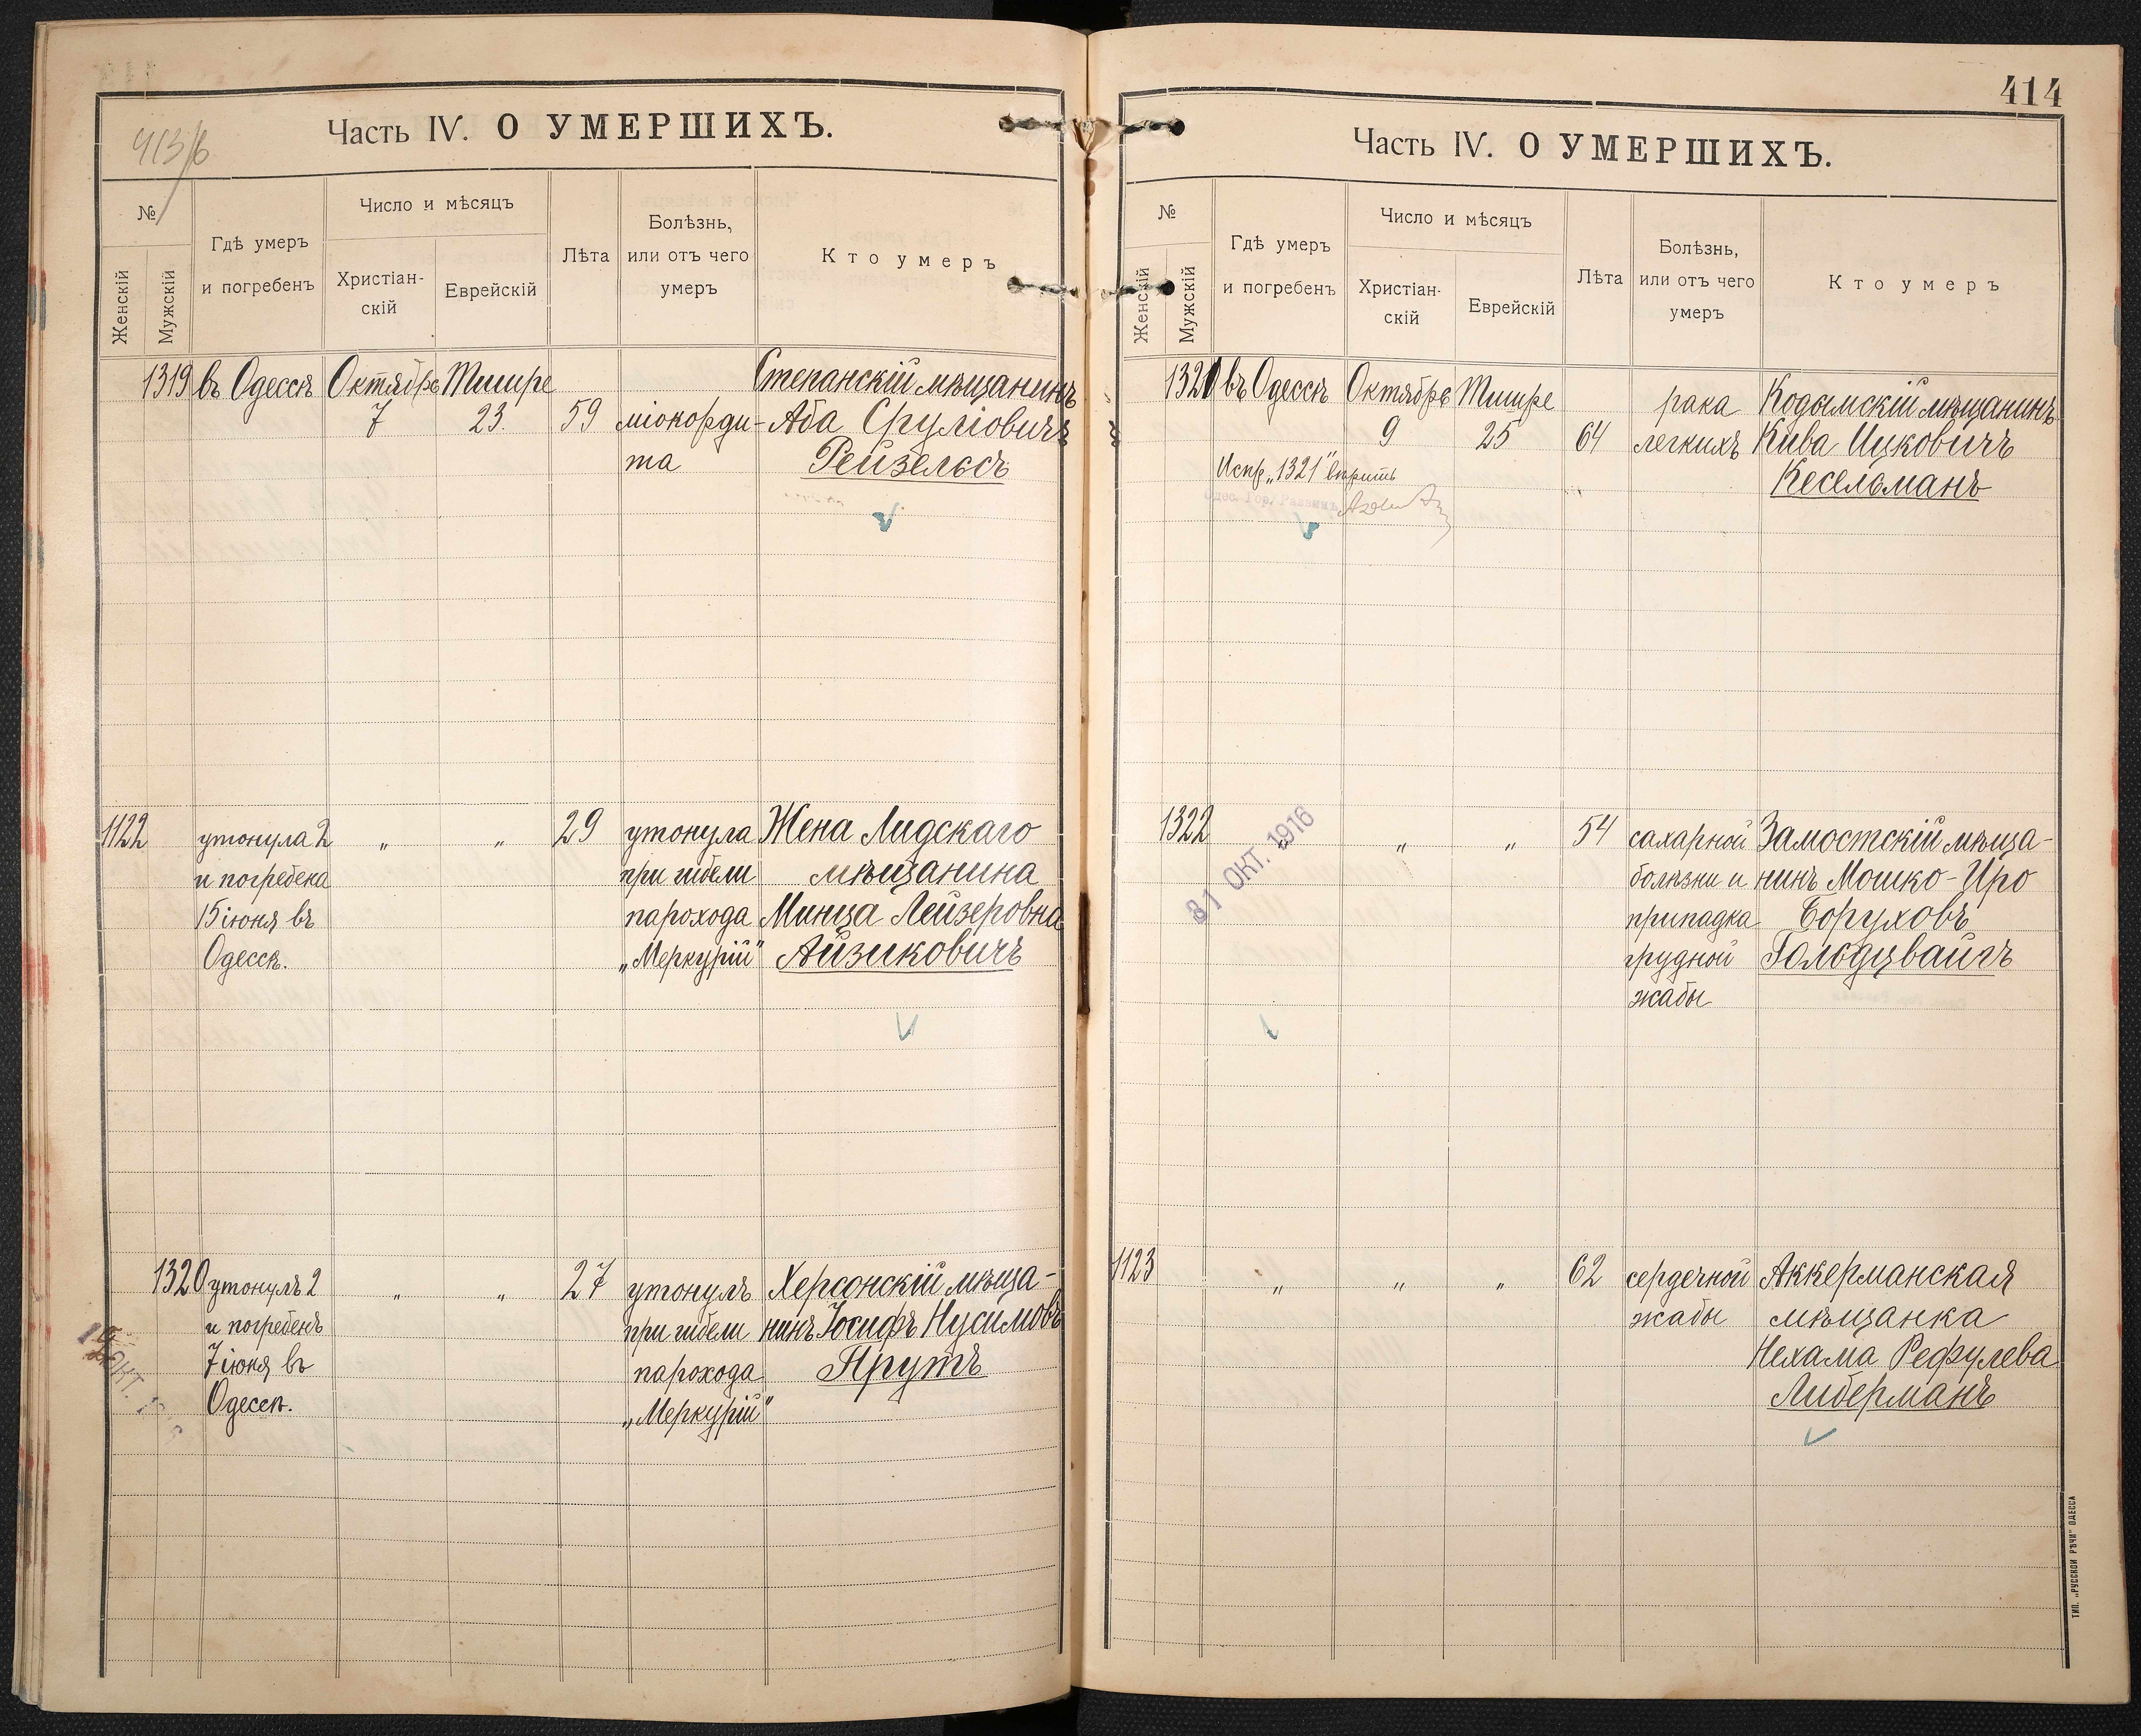 413/б
Часть IV. О УМЕРШИХЪ.
№
Женскій
Мужскій
Гдѣ умеръ
и погребенъ
Число и мѣсяцъ
Христіан-
скій
Еврейскій
Лѣта
Болѣзнь,
или отъ чего
умеръ
Кто умеръ
1319 въ Одессѣ Октябрь Тишре Степанскій мѣщанинъ
7 23. 59 міокорди- Аба Сруліовичъ
та Рейзельсъ
1122 утонула 2 „ „ 29 утонула Жена Лидскаго
и погребена при гибели мѣщанина
15 іюня въ парохода Минца Лейзеровна
Одессѣ. „Меркурій" Айзиковичъ
1320 утонулъ 2 „ „ 27 утонулъ Херсонскій мѣща-
и погребенъ при гибели нинъ Іосифъ Нусимовъ
7 іюня въ парохода Прутъ
Одессѣ. „Меркурій"
414
Часть IV. О УМЕРШИХЪ.
№
Женскій
Мужскій
Гдѣ умеръ
и погребенъ
Число и мѣсяцъ
Христіан-
скій
Еврейскій
Лѣта
Болѣзнь,
или отъ чего
умеръ
Кто умеръ
1321 въ Одессѣ Октябрь Тишре рака Кодымскій мѣщанинъ
9 25 64 легкихъ Кива Ицковичъ
Испр. „1321" вѣрить Кесельманъ
Одес. Гор. Раввинъ
1322 „ „ „ 54 сахарной Замостскій мѣща-
31 ОКТ. 1916
болѣзни и нинъ Мошко-Иро
припадка Боруховъ
грудной Гольдцвайгъ
жабы
1123 „ „ „ 62 сердечной Аккерманская
жабы мѣщанка
Нехама Рефулева
Либерманъ
ТИП. „РУССКОЙ РѢЧИ" ОДЕССА